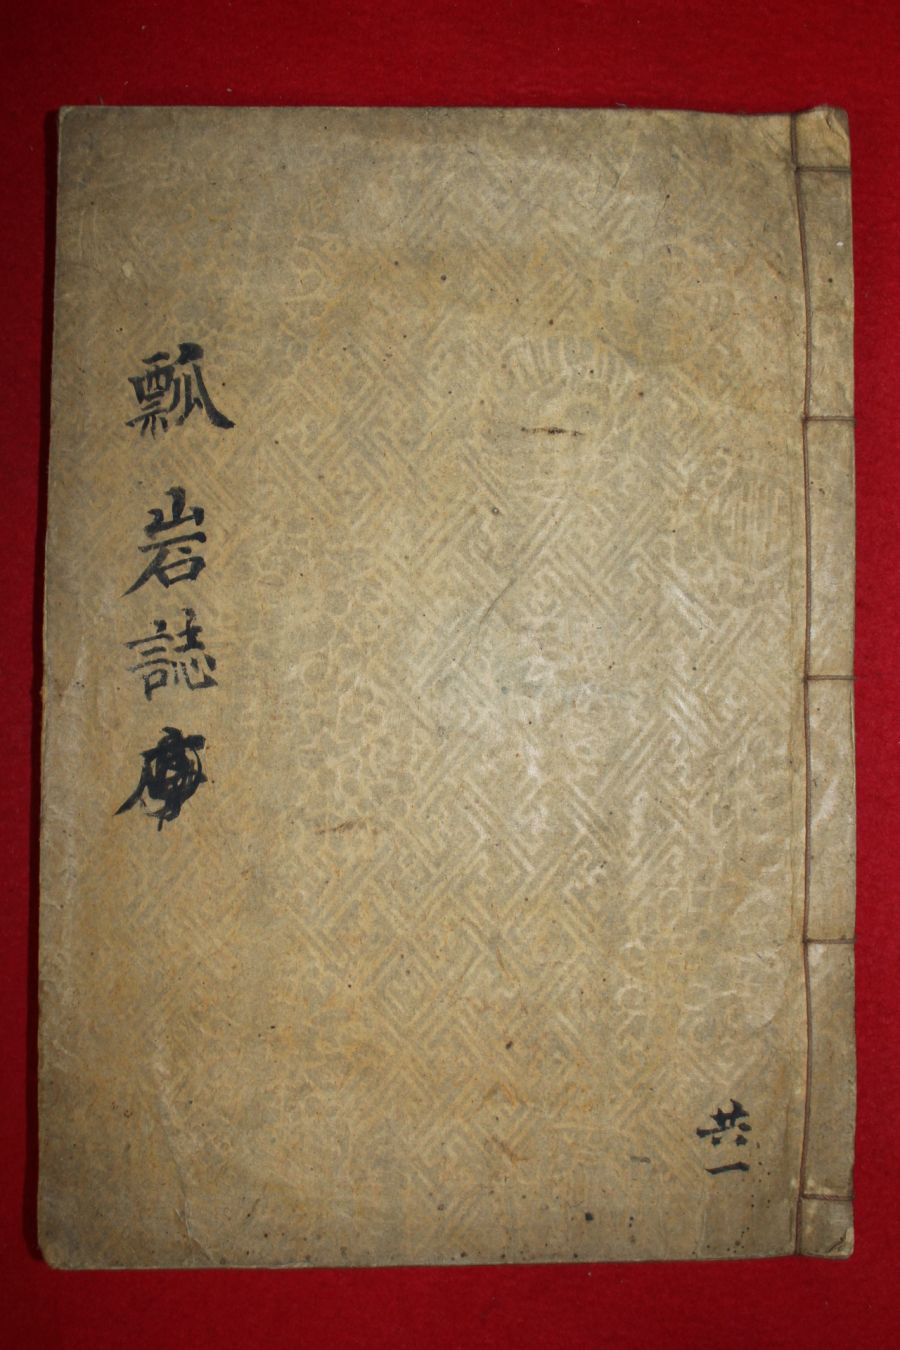 瓢岩誌
共一